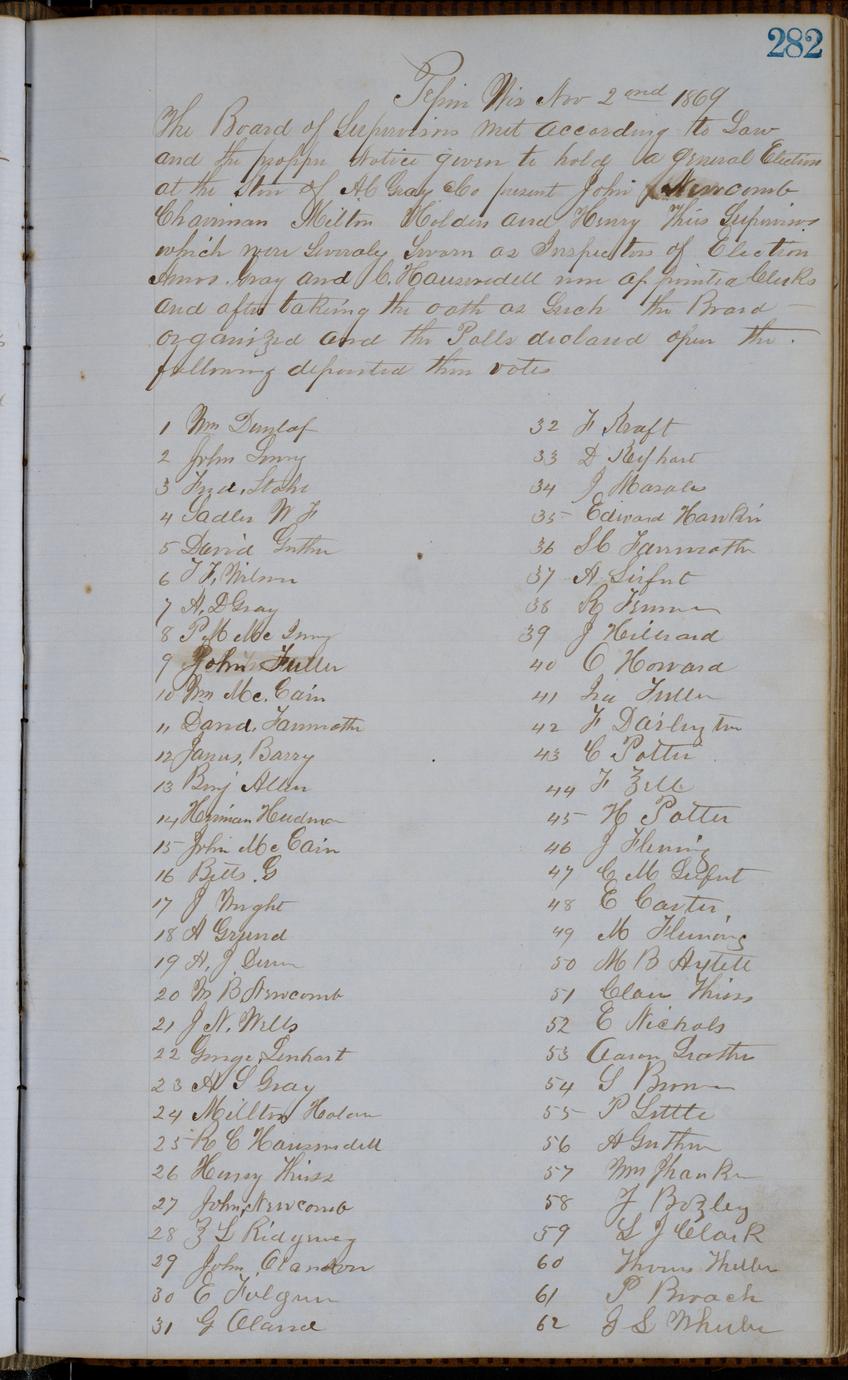 282
Pepin Wis Nov 2nd 1869
The Board of Supervisors met according to Law
and the propper notice given to hold a general Election
at the Stor of A C Gray & Co present John Newcomb
Chairman Milton Holden and Henry Thiss Supervisors
which were Severaly Sworn as Inspectors of Election
Amos Gray and C. Hauswedell were appointed Clerks
and after taking the oath as Such the Board
organized and the Polls declared open the
following deposited their votes
1 Wm Dunlap
2 John
3 Fred. Stahl
4 Sadler W F
5 David Guthri
6 T F. Wilson
7 A. D Gray
8 P M Mc
9 John Fuller
10 Wm Mc. Cain
11 David.
12 James, Barry
13 Benj Allen
14 Herman
15 John Mc Cain
16 Betts. G
17 J Wright
18 A Grund
19 A. J.
20 W B Newcomb
21 J N. Wells
22 George Linhart
23 A S Gray
24 Millton Holden
25 R C Hauswedell
26 Henry Thiss
27 John Newcomb
28 Z L Ridgway
29 John
30 E Fulgum
31 G Oland
32 F Kraft
33 D
34 J
35 Edward Hawkin
36 S C
37 A Seifert
38 R
39 J Hilliard
40 O Howard
41 Ira Fuller
42 F Darlington
43 C Potter
44 F Zell
45 H Potter
46 J Fleming
47 C M Seifert
48 E Carter
49 M Fleming
50 M B Axtell
51 Claus Thiss
52 E Nichols
53 Aaron
54 S Brown
55 P Little
56 A Guthri
57 Wm
58 F Bozley
59 L J Clark
60 Thomas
61 P Broach
62 J S Wheeler